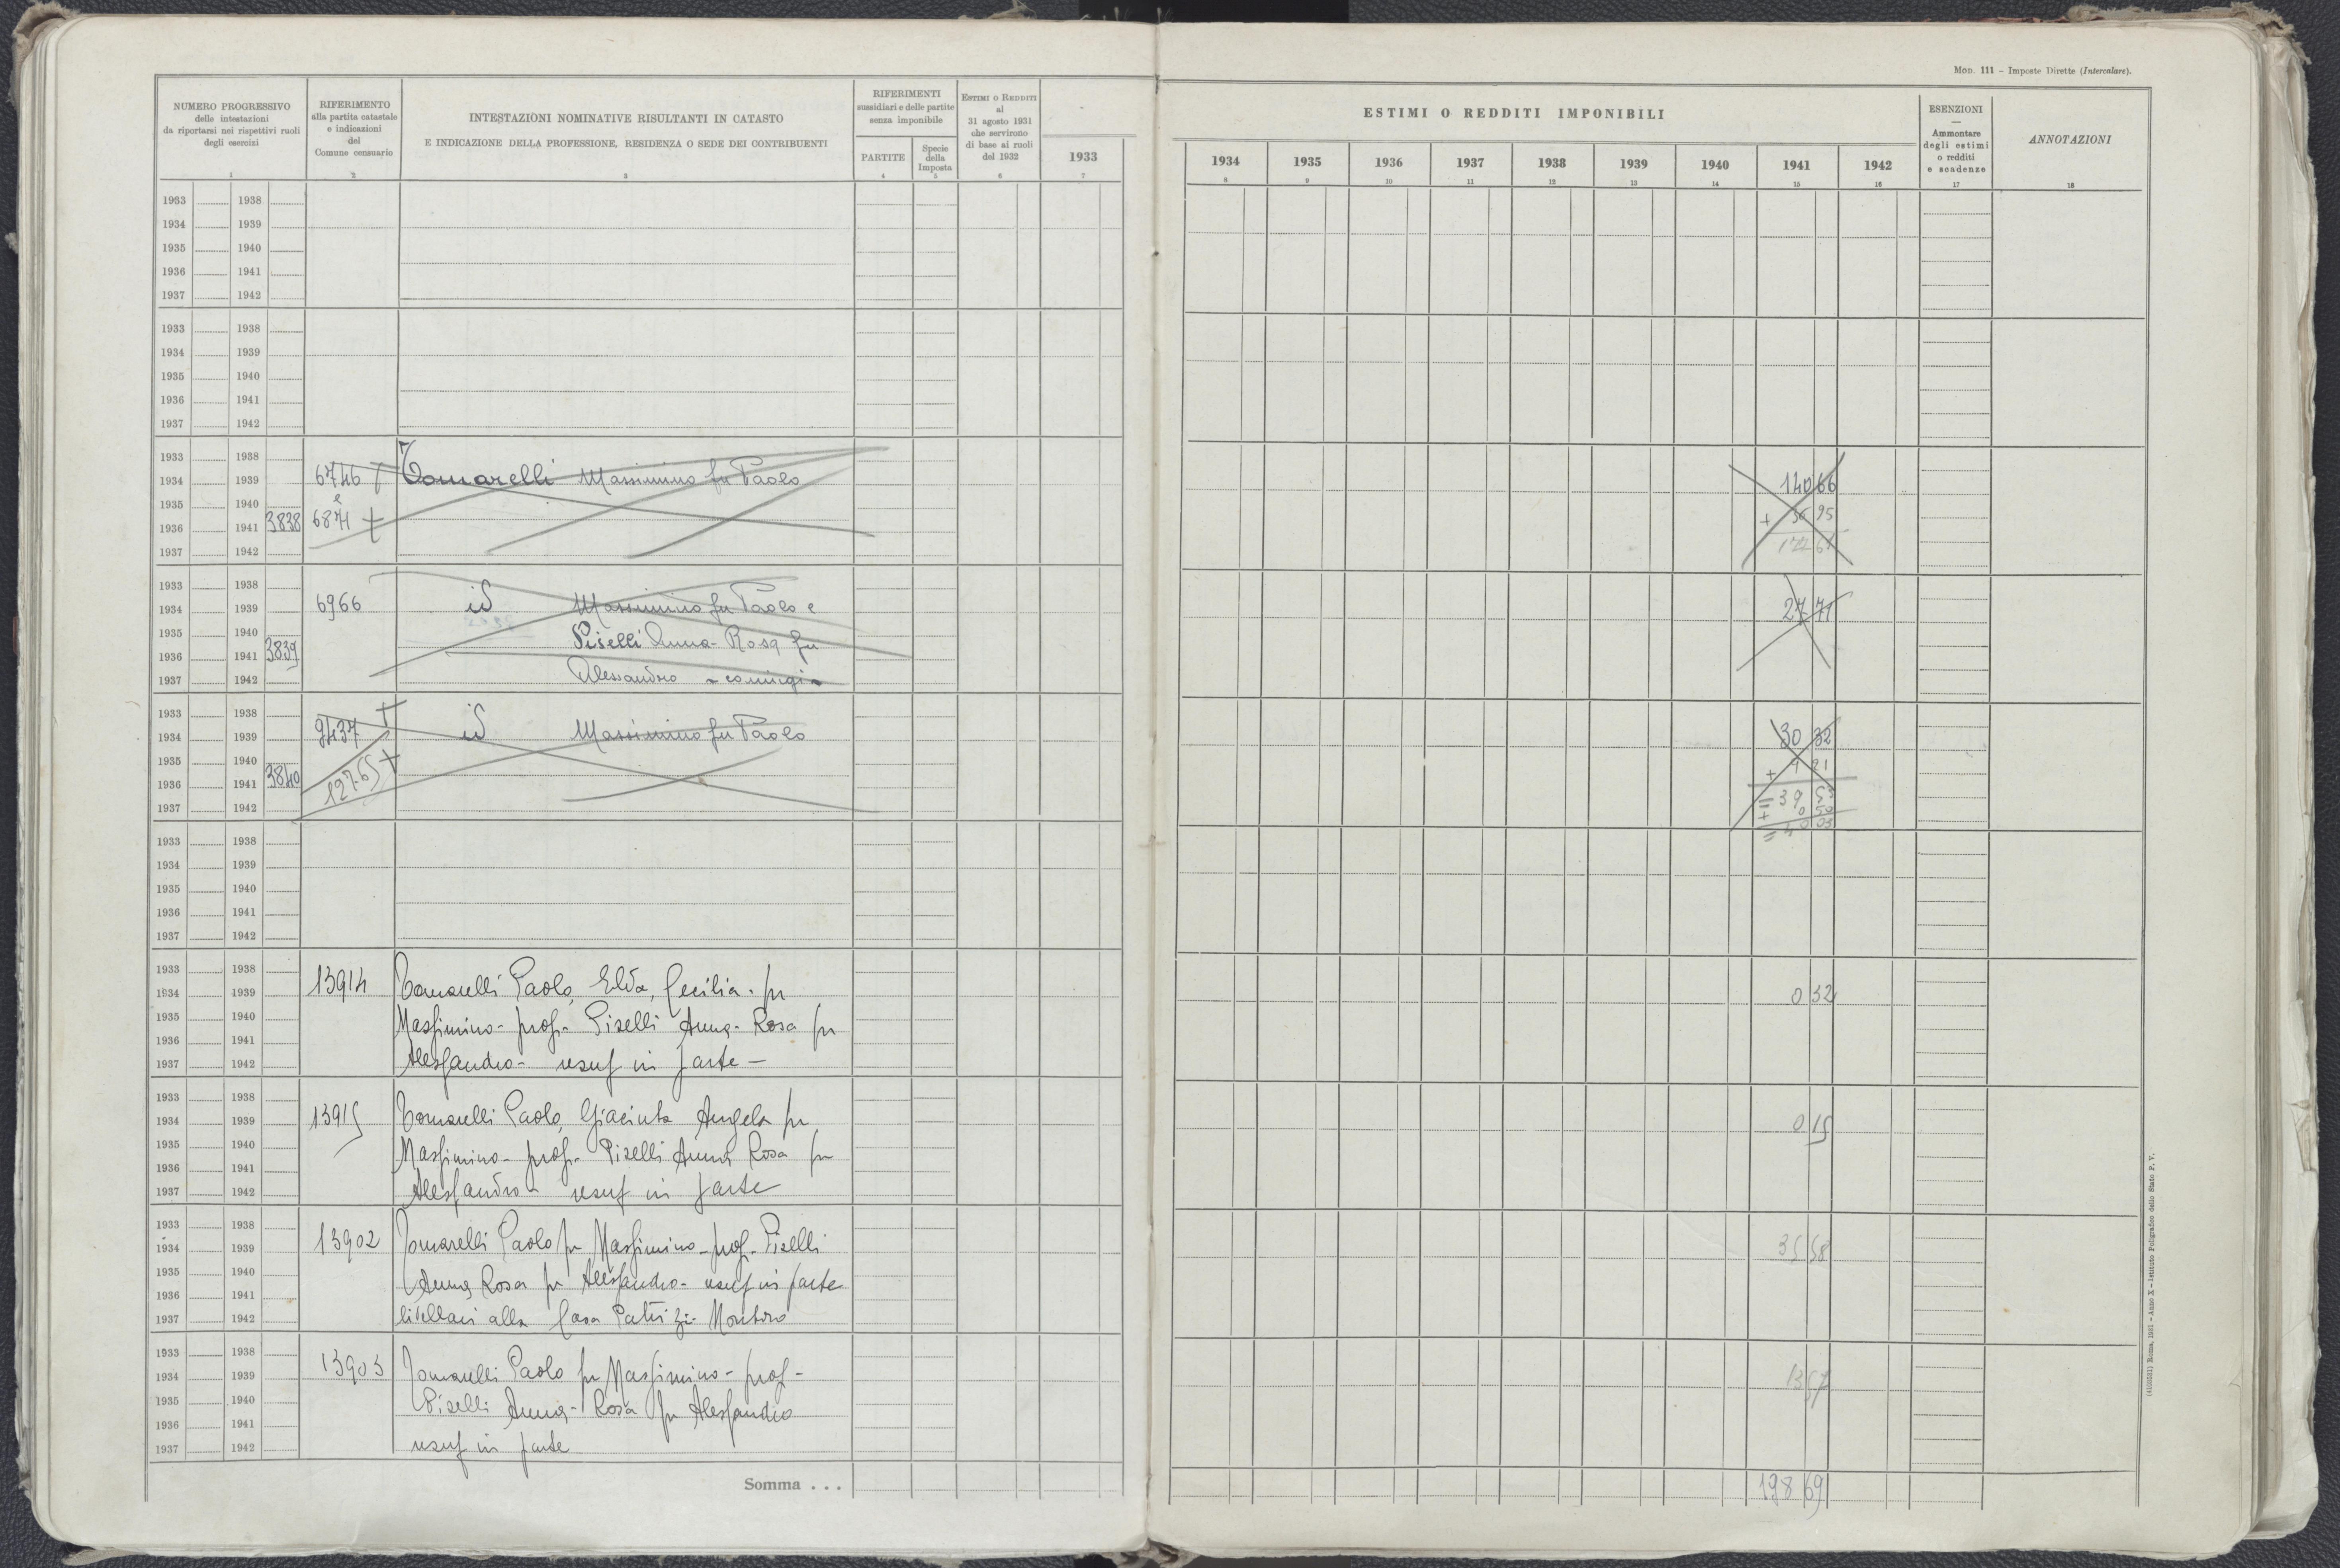 MOD. 111 – Imposte Dirette (Intercalare).
NUMERO PROGRESSIVO
delle intestazioni
da riportarsi nei rispettivi ruoli
degli esercizi
1
RIFERIMENTO
alla partita catastale
e indicazioni
del
Comune censuario
2
INTESTAZIONI NOMINATIVE RISULTANTI IN CATASTO
E INDICAZIONE DELLA PROFESSIONE, RESIDENZA O SEDE DEI CONTRIBUENTI
3
RIFERIMENTI
sussidiari e delle partite
senza imponibile
PARTITE
4
Specie
della
Imposta
5
ESTIMI O REDDITI
al
31 agosto 1931
che servirono
di base ai ruoli
del 1932
6
1933
7
ESTIMI O REDDITI IMPONIBILI
1934 1935 1936 1937 1938 1939 1940 1941 1942
8 9 10 11 12 13 14 15 16
ESENZIONI
—
Ammontare
degli estimi
o redditi
e scadenze
17
ANNOTAZIONI
18
1933 1938
1934 1939
1935 1940
1936 1941
1937 1942
1933 1938
1934 1939
1935 1940
1936 1941
1937 1942
1933 1938
1934 1939 6746 Tomarelli Massimino fu Paolo 140 66
1935 1940 e
1936 1941 3838 6871 + 36 95
1937 1942 61
1933 1938
1934 1939 6966 id Massimino fu Paolo e 27 71
1935 1940
1936 1941 3839 Piselli Anna-Rosa fu
1937 1942 Alessandro - coniugi -
1933 1938
1934 1939 9437 id Massimino fu Paolo 30 32
1935 1940 + 9 21
1936 1941 3840 12765 = 39 53
1937 1942 + 0 50
= 40 03
1933 1938
1934 1939
1935 1940
1936 1941
1937 1942
1933 1938
1934 1939 13914 Tomarelli Paolo, Elda, Cecilia. fu 0 32
1935 1940 Massimino- prop.- Piselli Anna-Rosa fu
1936 1941
1937 1942 Alessandro- usuf in parte –
1933 1938
1934 1939 13915 Tomarelli Paolo, Giacinta Angela fu 0 15
1935 1940
1936 1941 Massimino- prop.- Piselli Anna Rosa fu
1937 1942 Alessandro- usuf in parte
1933 1938
1934 1939 13902 Tomarelli Paolo fu Massimino- prop- Piselli 35 58
1935 1940 Anna Rosa fu Alessandro- usuf in parte
1936 1941
1937 1942 livellari alla Casa Patrizi- Montoro
1933 1938
1934 1939 13903 Tomarelli Paolo fu Massimino- prop- 13 57
1935 1940 Piselli Anna-Rosa fu Alessandro
1936 1941
1937 1942 usuf in parte
Somma . . . 198 69
(4100531) Roma, 1931 – Anno X – Istituto Poligrafico dello Stato P. V.